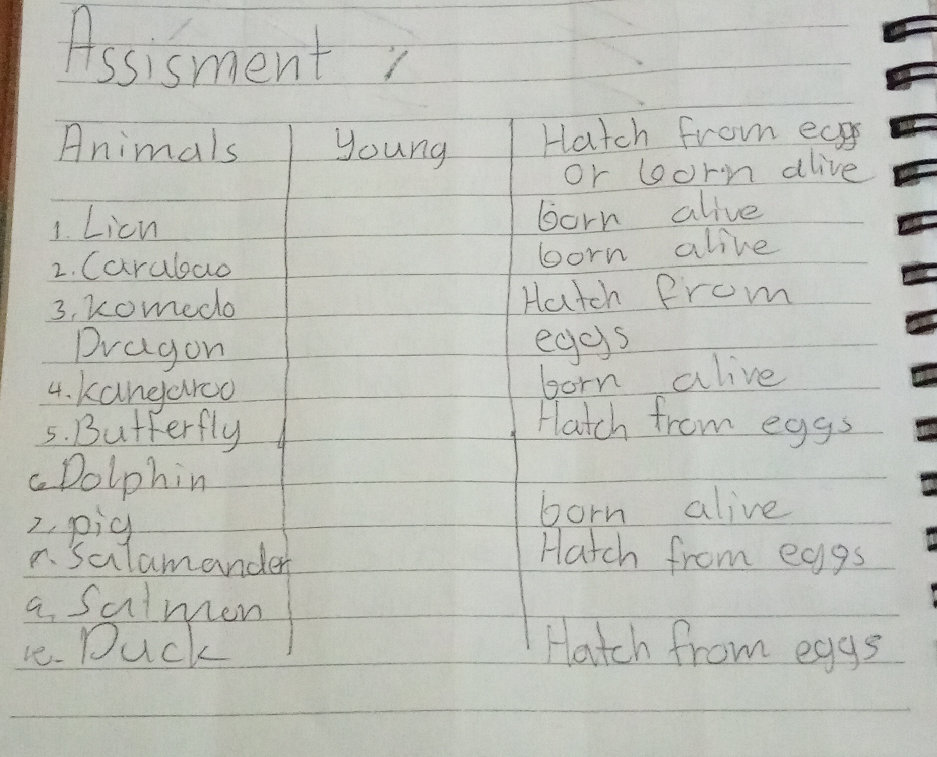 Assisment :
Animals Young Hatch from eggs
or born alive
1. Lion born alive
2. Carabao born alive
3. Komodo Hatch from
Dragon eggs
4. Kangaroo born alive
5. Butterfly Hatch from eggs
6. Dolphin
7. pig born alive
8. Salamander Hatch from eggs
9. Salmon
10. Duck Hatch from eggs